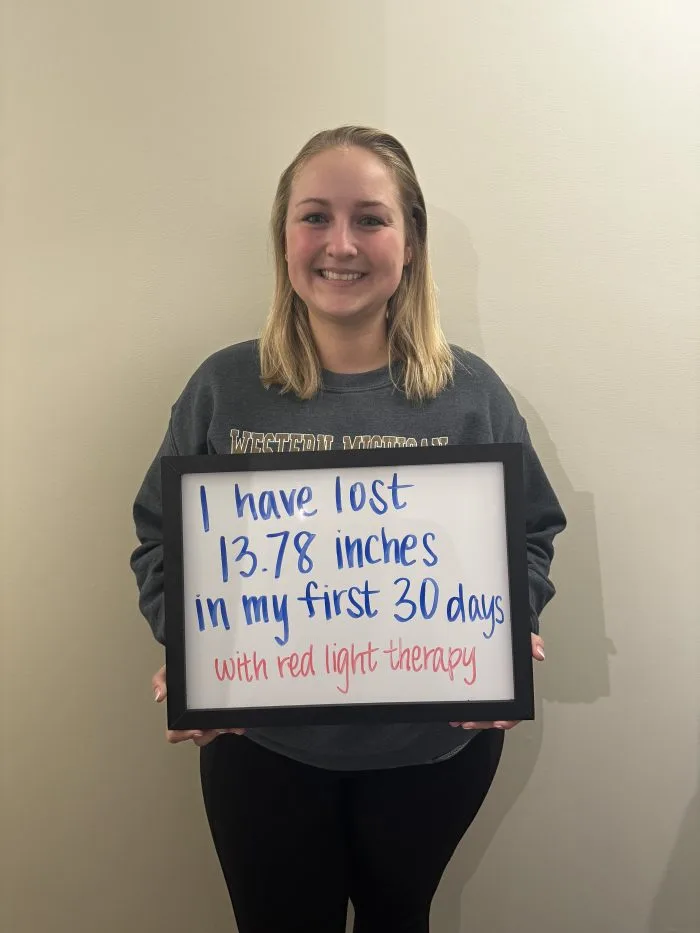 WESTERN MICHIGAN
I have lost
13.78 inches
in my first 30 days
with red light therapy